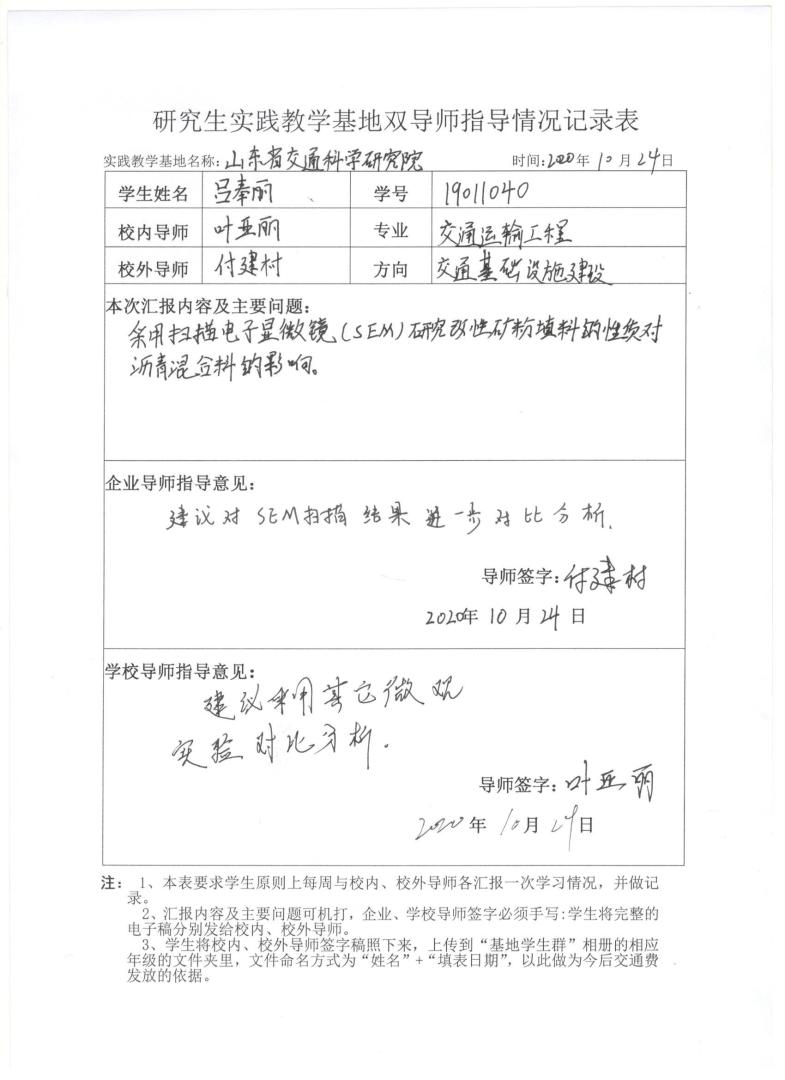 研究生实践教学基地双导师指导情况记录表
实践教学基地名称:山东省交通科学研究院 时间:2020年10月24日
学生姓名 吕奉丽 学号 19011040
校内导师 叶亚丽 专业 交通运输工程
校外导师 付建村 方向 交通基础设施建设
本次汇报内容及主要问题:
采用扫描电子显微镜(SEM)研究改性矿粉填料的性质对
沥青混合料的影响。
企业导师指导意见:
建议对SEM扫描结果进一步对比分析.
导师签字:付建村
2020年10月24日
学校导师指导意见:
建议采用其它微观
实验对比分析.
导师签字:叶亚丽
2020年10月24日
注: 1、本表要求学生原则上每周与校内、校外导师各汇报一次学习情况，并做记
录。
2、汇报内容及主要问题可机打，企业、学校导师签字必须手写;学生将完整的
电子稿分别发给校内、校外导师。
3、学生将校内、校外导师签字稿照下来，上传到“基地学生群”相册的相应
年级的文件夹里，文件命名方式为“姓名”+“填表日期”，以此做为今后交通费
发放的依据。